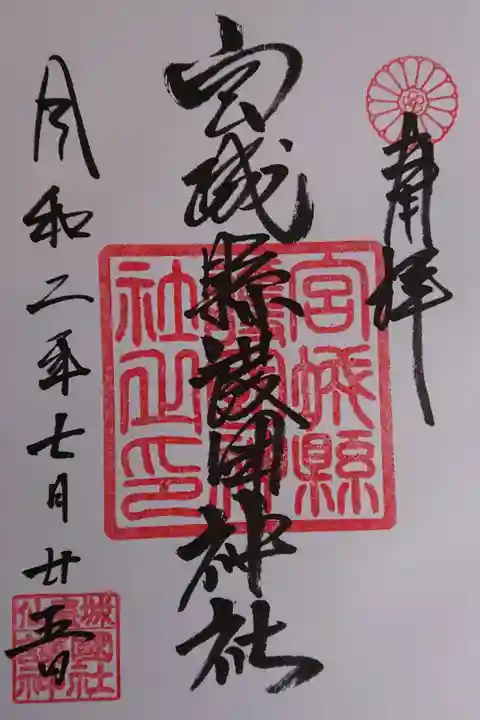 奉拝
宮城縣護国神社
宮城縣護國神社之印
令和二年七月廿五日